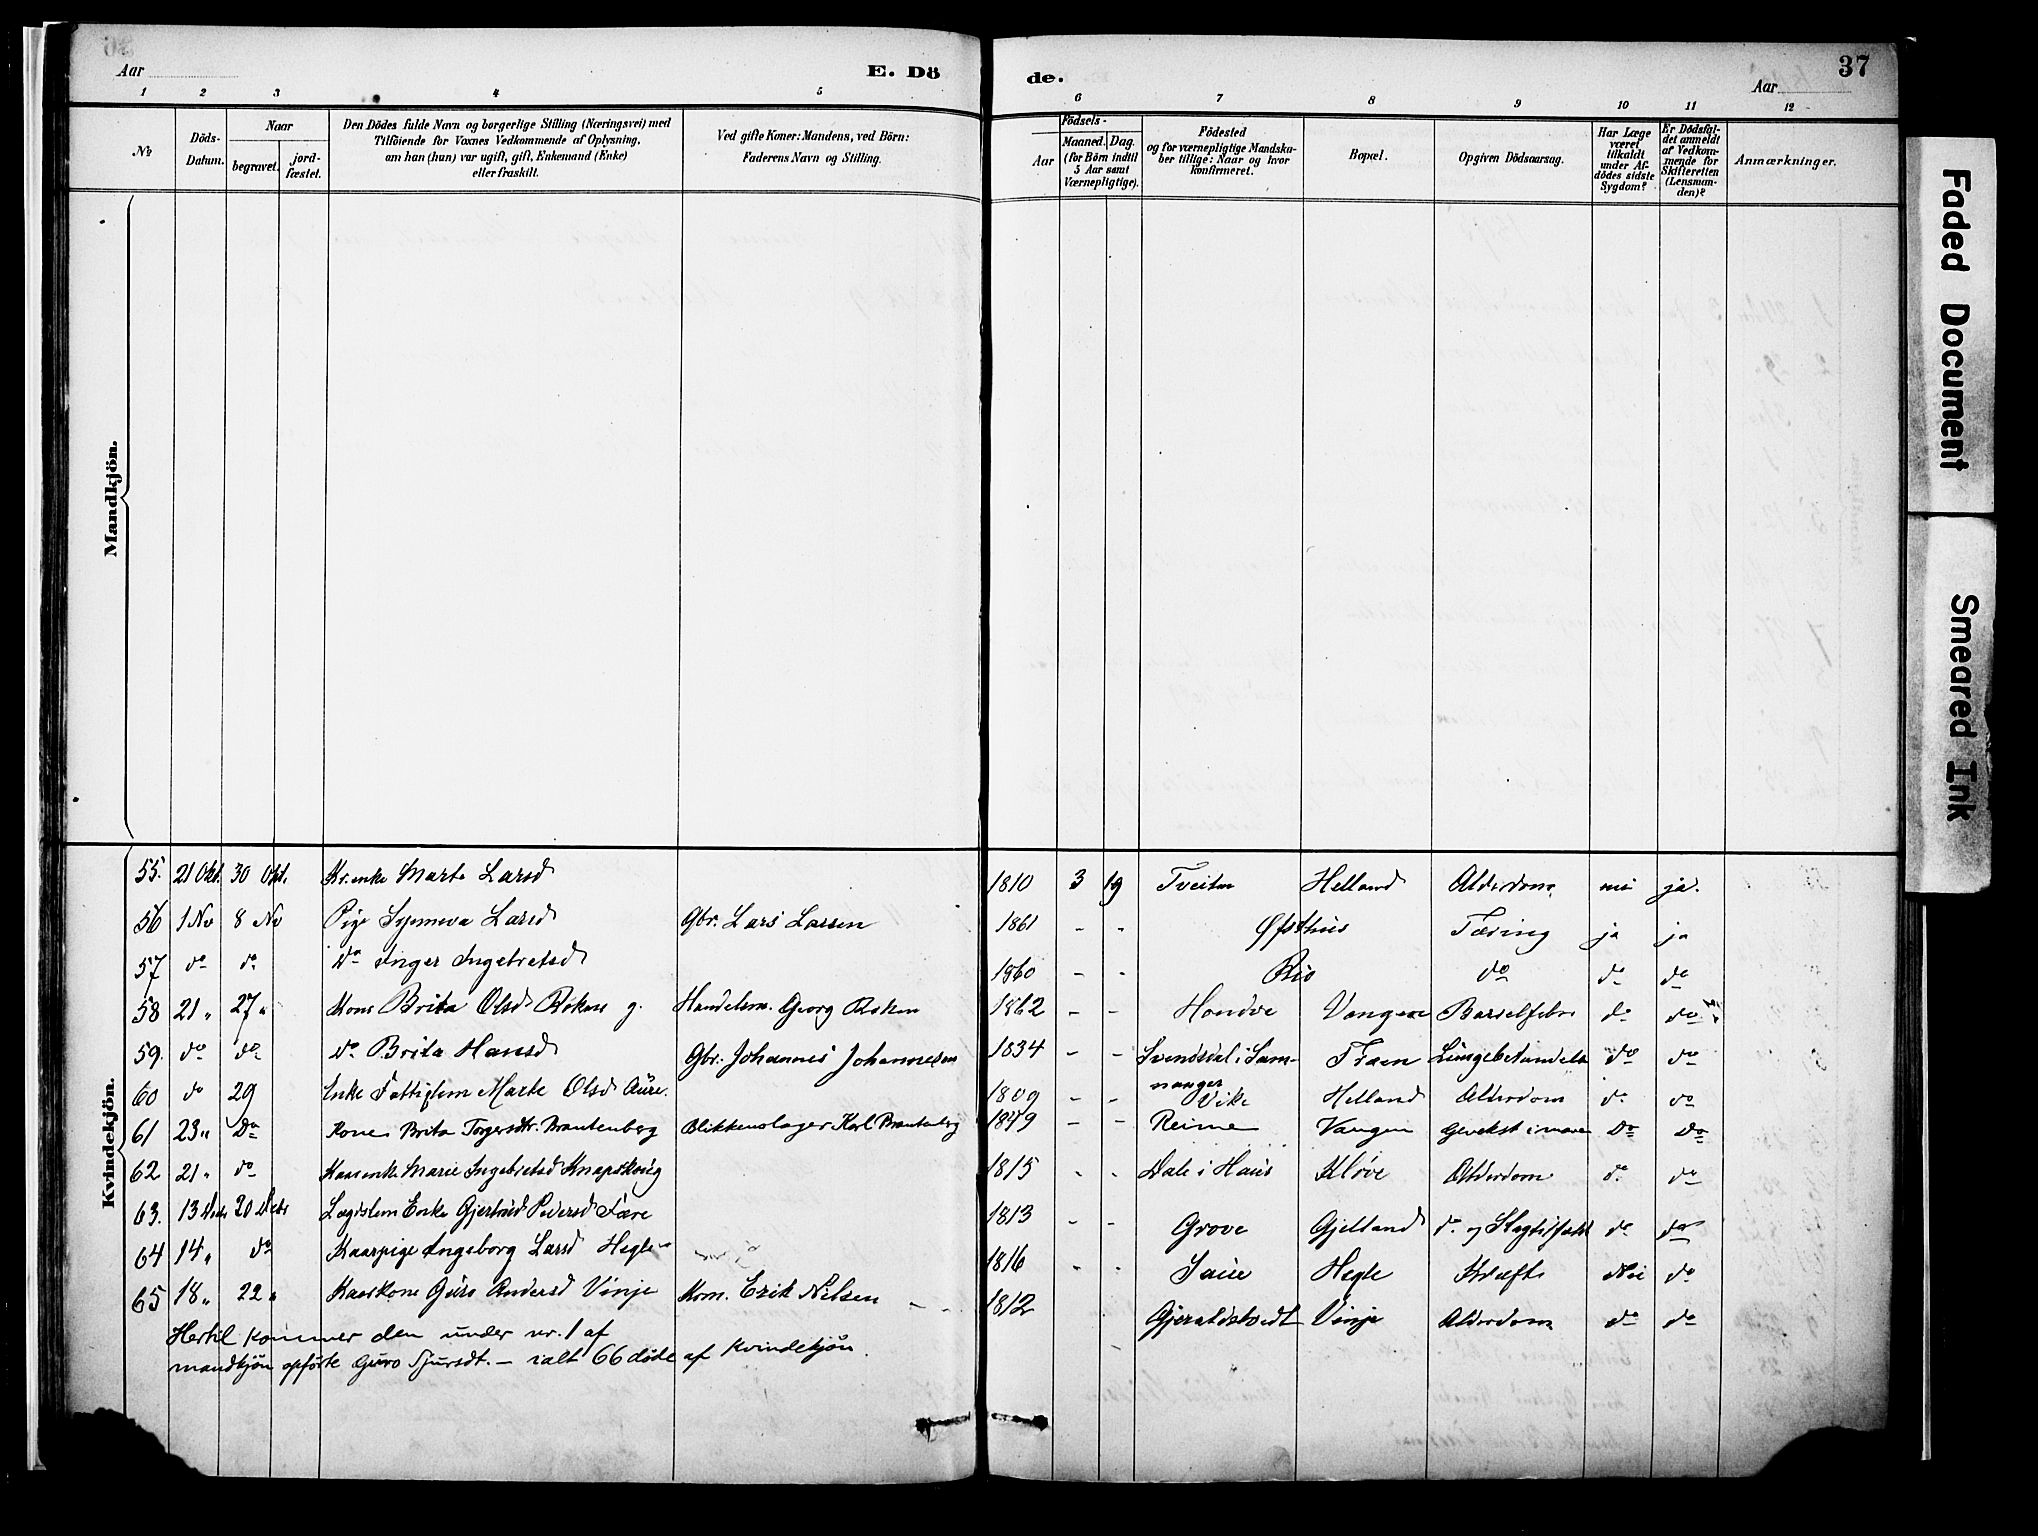 Aar
E. Dö
de.
Aar
37
1 2 3 4 5 6 7 8 9 10 11 12
№
Döds-
Datum.
Naar
begravet.
jord-
fæstet.
Den Dödes fulde Navn og borgerlige Stilling (Næringsvei) med
Tilföiende for Voxnes Vedkommende af Oplysning,
om han (hun) var ugift, gift, Enkemand (Enke)
eller fraskilt.
Ved gifte Koner: Mandens, ved Börn:
Faderens Navn og Stilling.
Födsels-
Aar
Maaned. Dag.
(for Börn indtil
5 Aar samt
Værnepligtige).
Födested
og for værnepligtige Mandska-
ber tillige: Naar og hvor
konfirmeret.
Bopæl.
Opgiven Dödsaarsag.
Har Læge
været
tilkaldt
under Af-
dödes sidste
Sygdom?
Er Dödsfal-
det anmeldt
af Vedkom-
mende for
Skifteretten
(Lensman-
den)?
Anmærkninger.
Mandkjön.
Kvindekjön.
55. 21 Okt. 30 Okt. Kr.enke Marte Larsd 1810 3 19 Tveiten Helland Alderdom nei ja.
56 1 Nv 8 Nv Pige Synneva Larsd Gbr. Lars Larsen 1861 - - Øfsthus Tæring ja ja
57 do do do Inger Ingebretsd 1860 - - Rio do do do
58 21 " 27 " Kone Brita Olsd Røkne g. Handelsm. Georg Rokne 1862 - - Hondve Vangen Barselfeber do do
59. do do do Brita Hansd Gbr. Johannes Johannesen 1834 - - Svendsdal i Sam-
nanger Traen Lungebetændelse do do
60 do 29 Enke Fattiglem Marte Olsd Aure. 1809 - - Vike Helland Alderdom do do
61 23 " Do Kone Brita Torgersdtr. Brantenberg Blikkenslager Karl Brantenberg 1849 - - Reime Vangen Gevekst i maven Do Do
62 21 " do Kaarenke Marie Ingebretsd Knapskoug 1815 - - Dale i Haus Kløve Alderdom do do
63. 13 Decbr 20 Decbr Lægdslem Enke Gjertrud Pedersd Fære 1813 - - Grove Gjelland do og Slagtilfæld do do
64 14 " do Kaarpige Ingeborg Larsd Hegle 1816 - - Saue Hegle Kræft Nei do
65 18 " 22 " Kaarkone Guro Andersd Vinje Kom. Erik Nilsen 1812 Gjeraldstvedt Vinje Alderdom do do
Hertil kommer den under nr. 1 af
mandkjøn opførte Guro Sjursdt. - ialt 66 døde af kvindekjøn.
Faded Document
Smeared Ink